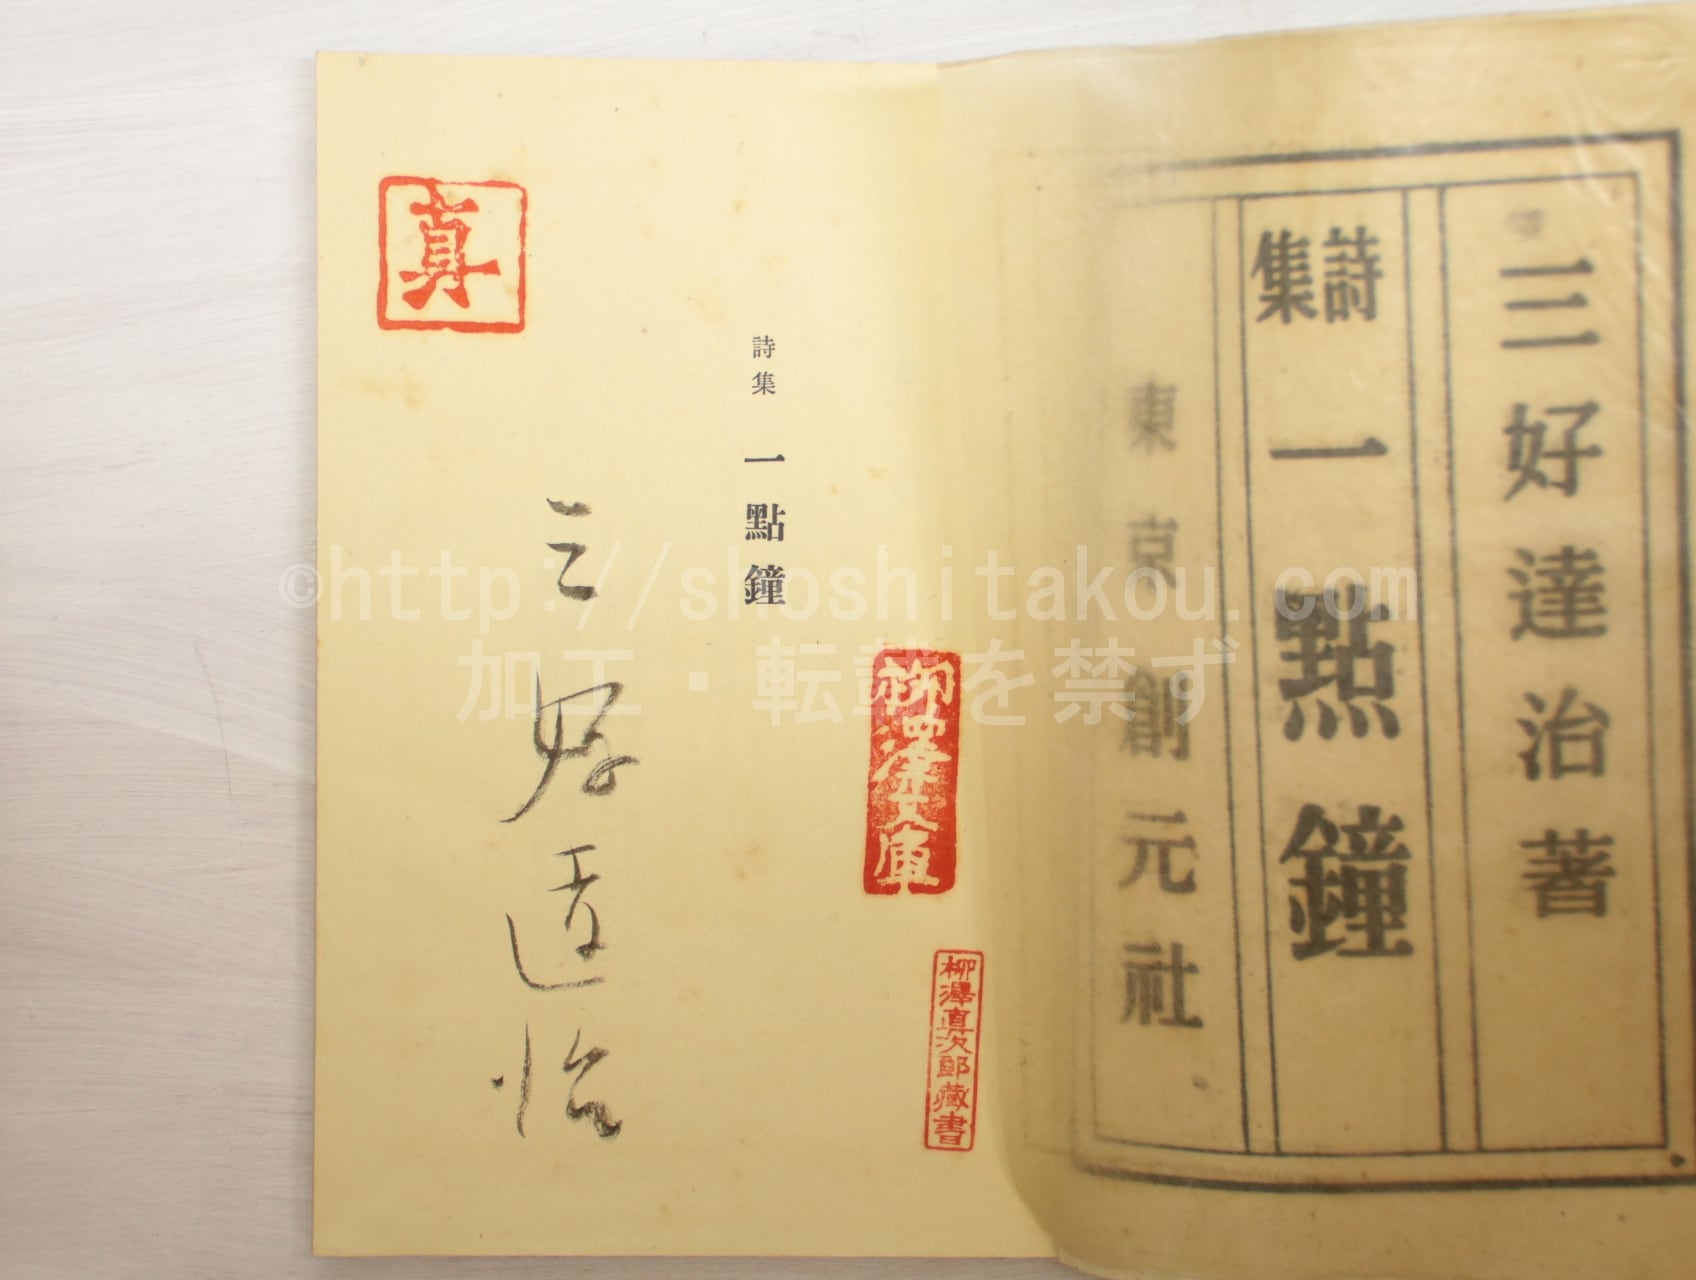 三好達治著
詩集
一點鐘
東京創元社
詩集 一點鐘
三好達治
真
柳澤文庫
柳澤真次郎藏書
©http://shoshitakou.com
加工・転載を禁ず